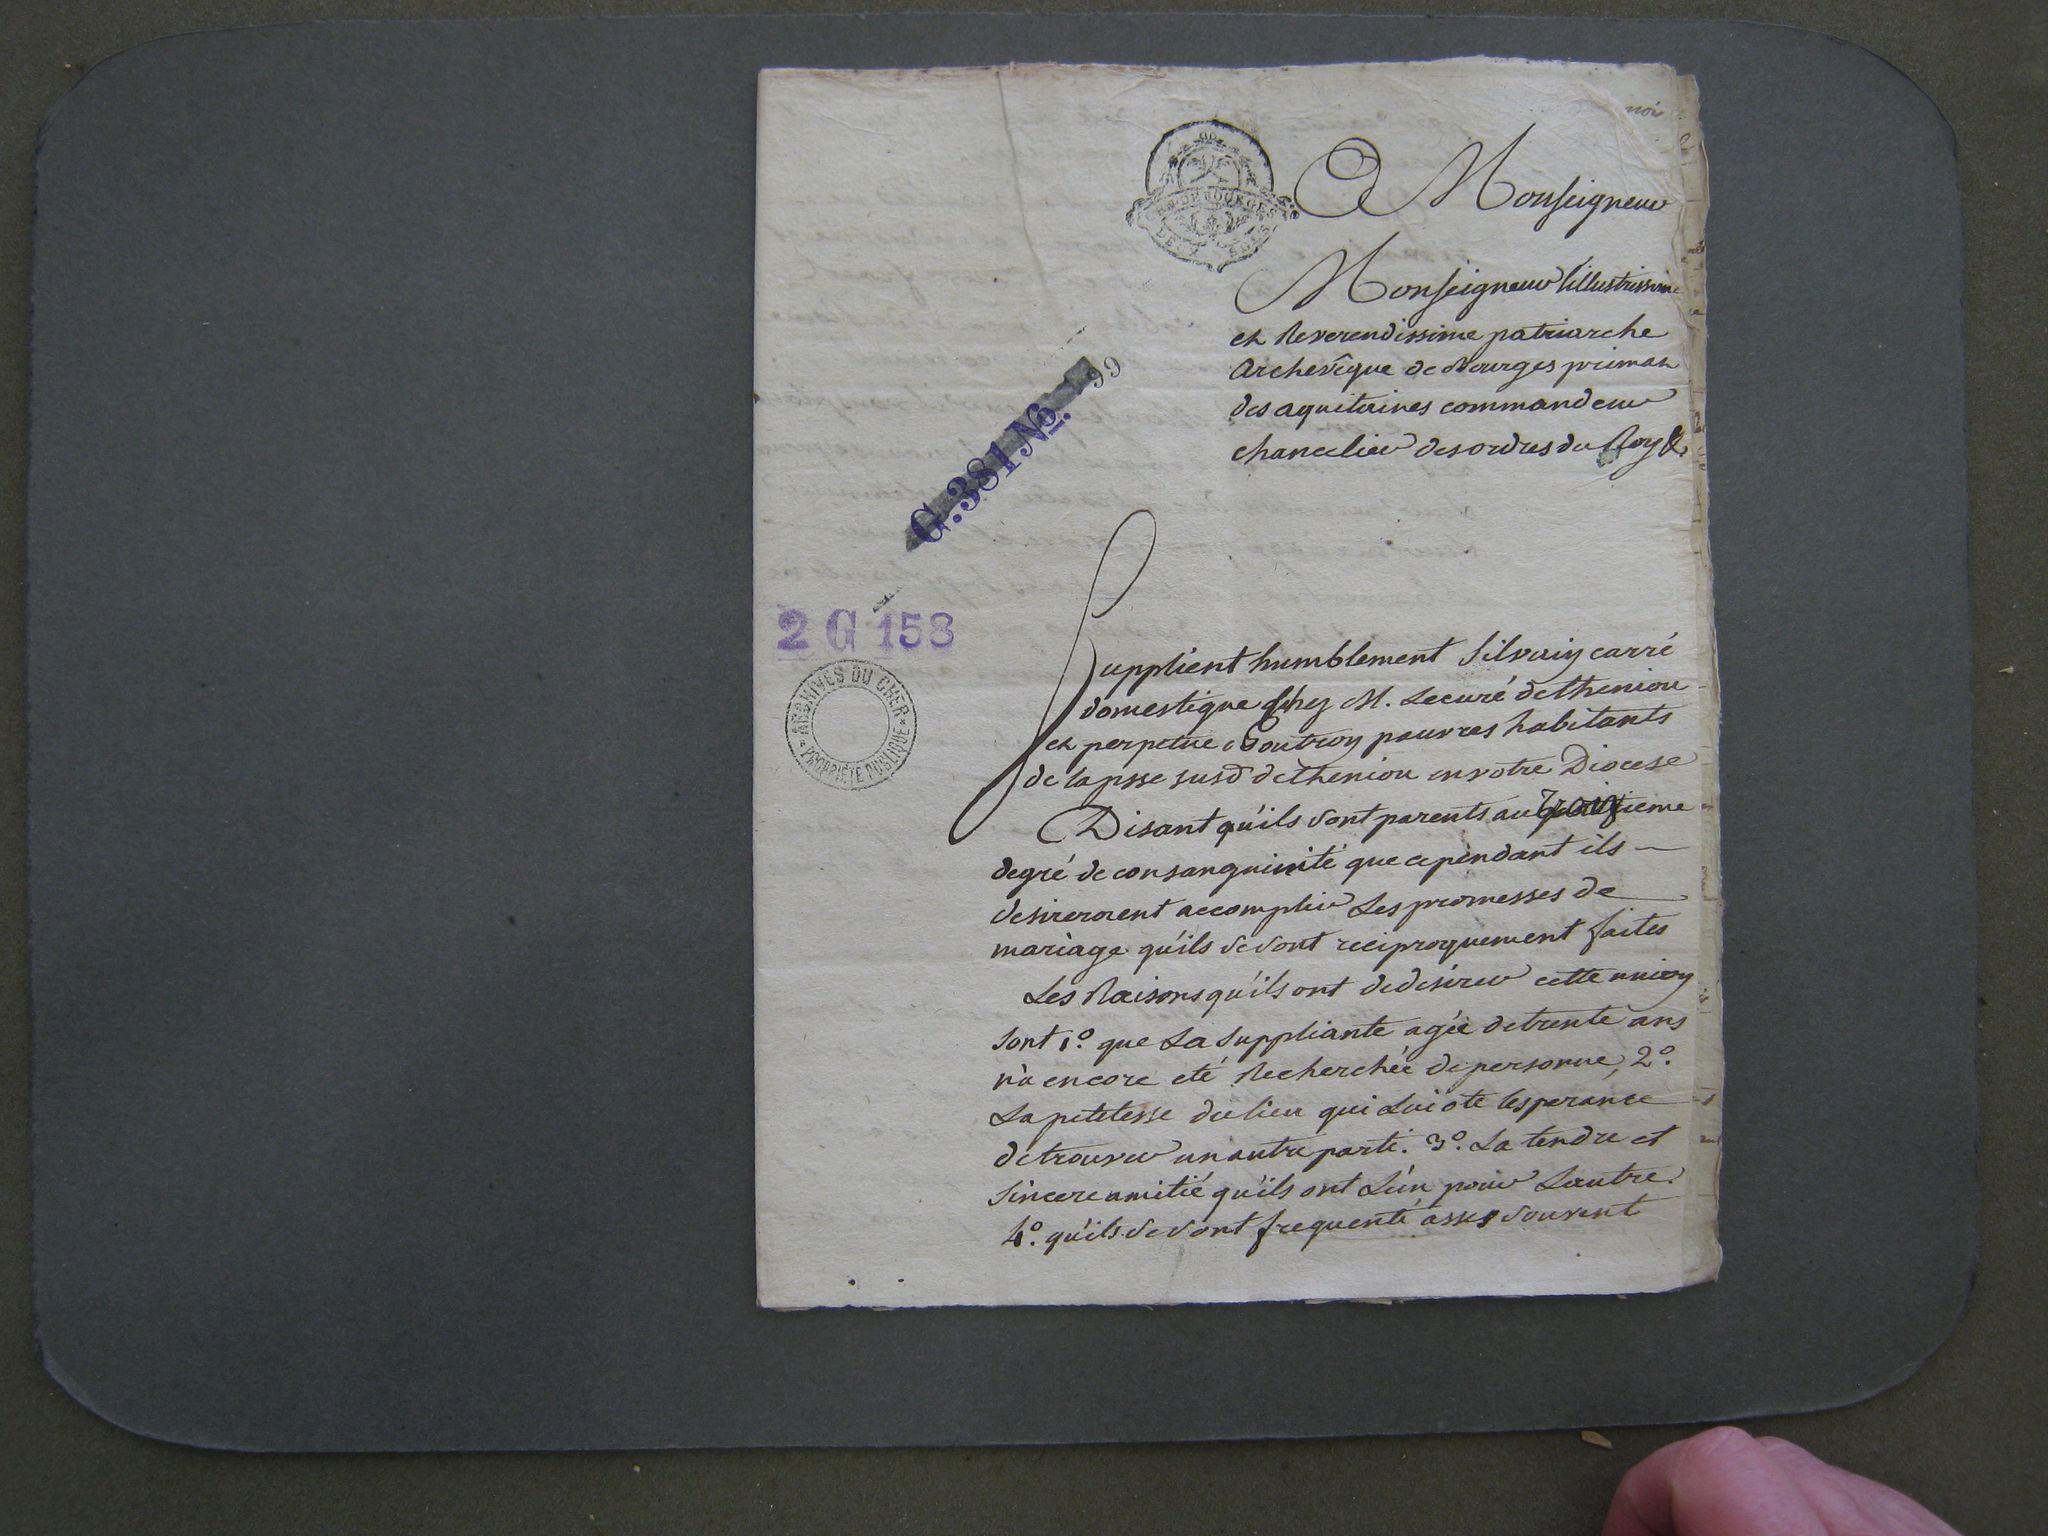 noir
A Monseigneur
GEN. DE BOURGES
DEUX SOLS
Monseigneur l'illustrissime
et Reverendissime patriarche
Archevêque de Bourges primat
des aquitaines commandeur
chancelier des ordres du Roy &
99
G.381 No.
2 G 158
ARCHIVES DU CHER
PROPRIÉTÉ PUBLIQUE
Supplient humblement Silvain carré
domestique chez M. Le curé de theniou
et perpetue Boutron pauvres habitants
de la psse susd de theniou en votre Diocese
Disant qu'ils sont parents au troisieme
degré de consanguinité que cependant ils
desireroient accomplir Les promesses de
mariage qu'ils se sont reciproquement faites
Les Raisons qu'ils ont de desirer cette union
sont 1º. que La Suppliante agée de trente ans
n'a encore eté Recherchée de personne, 2º.
La petitesse du lieu qui Lui ote l'esperance
de trouver un autre parti. 3º. La tendre et
sincere amitié qu'ils ont L'un pour L'autre.
4º. qu'ils se sont frequenté assés souvent